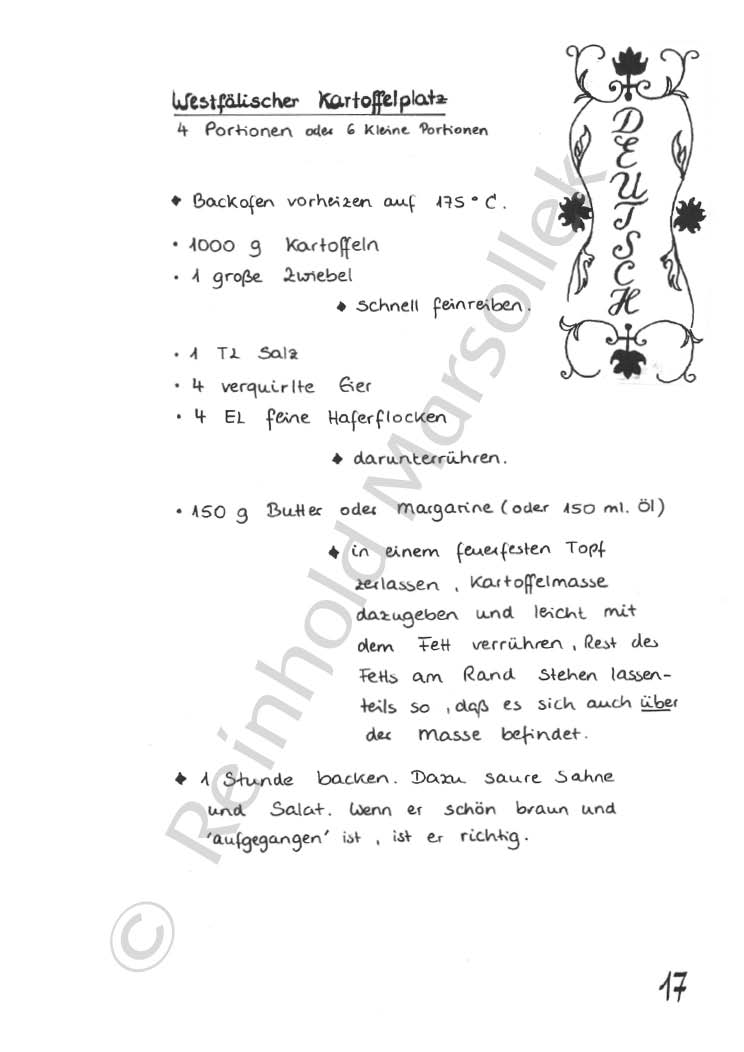 Westfälischer Kartoffelplatz
4 Portionen oder 6 kleine Portionen
DEUTSCH
◆ Backofen vorheizen auf 175° C.
• 1000 g Kartoffeln
• 1 große Zwiebel
◆ schnell feinreiben.
• 1 TL Salz
• 4 verquirlte Eier
• 4 EL feine Haferflocken
◆ darunterrühren.
• 150 g Butter oder Margarine (oder 150 ml. Öl)
◆ in einem feuerfesten Topf
zerlassen, Kartoffelmasse
dazugeben und leicht mit
dem Fett verrühren, Rest des
Fetts am Rand stehen lassen-
teils so, daß es sich auch über
der Masse befindet.
◆ 1 Stunde backen. Dazu saure Sahne
und Salat. Wenn er schön braun und
'aufgegangen' ist, ist er richtig.
© Reinhold Marsollek
17